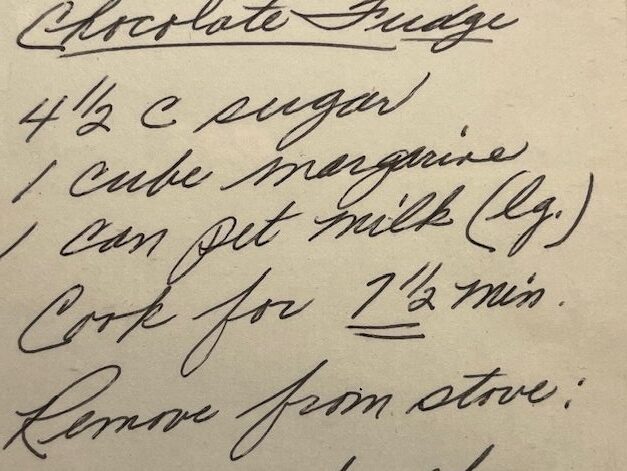 Chocolate Fudge
4 1/2 c sugar
1 cube margarine
1 can pet milk (lg.)
Cook for 7 1/2 min.
Remove from stove: